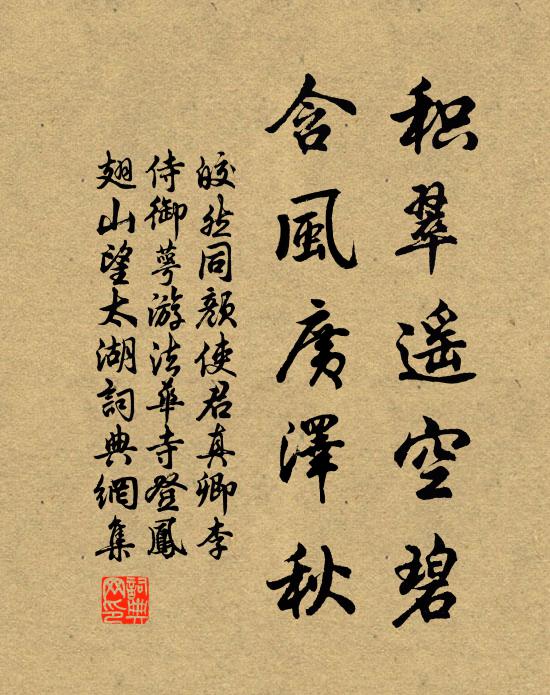 积翠遥空碧
含風廣澤秋
皎然同顏使君真卿李
侍御萼游法華寺登鳳
翅山望太湖詞典網集
詞典網印